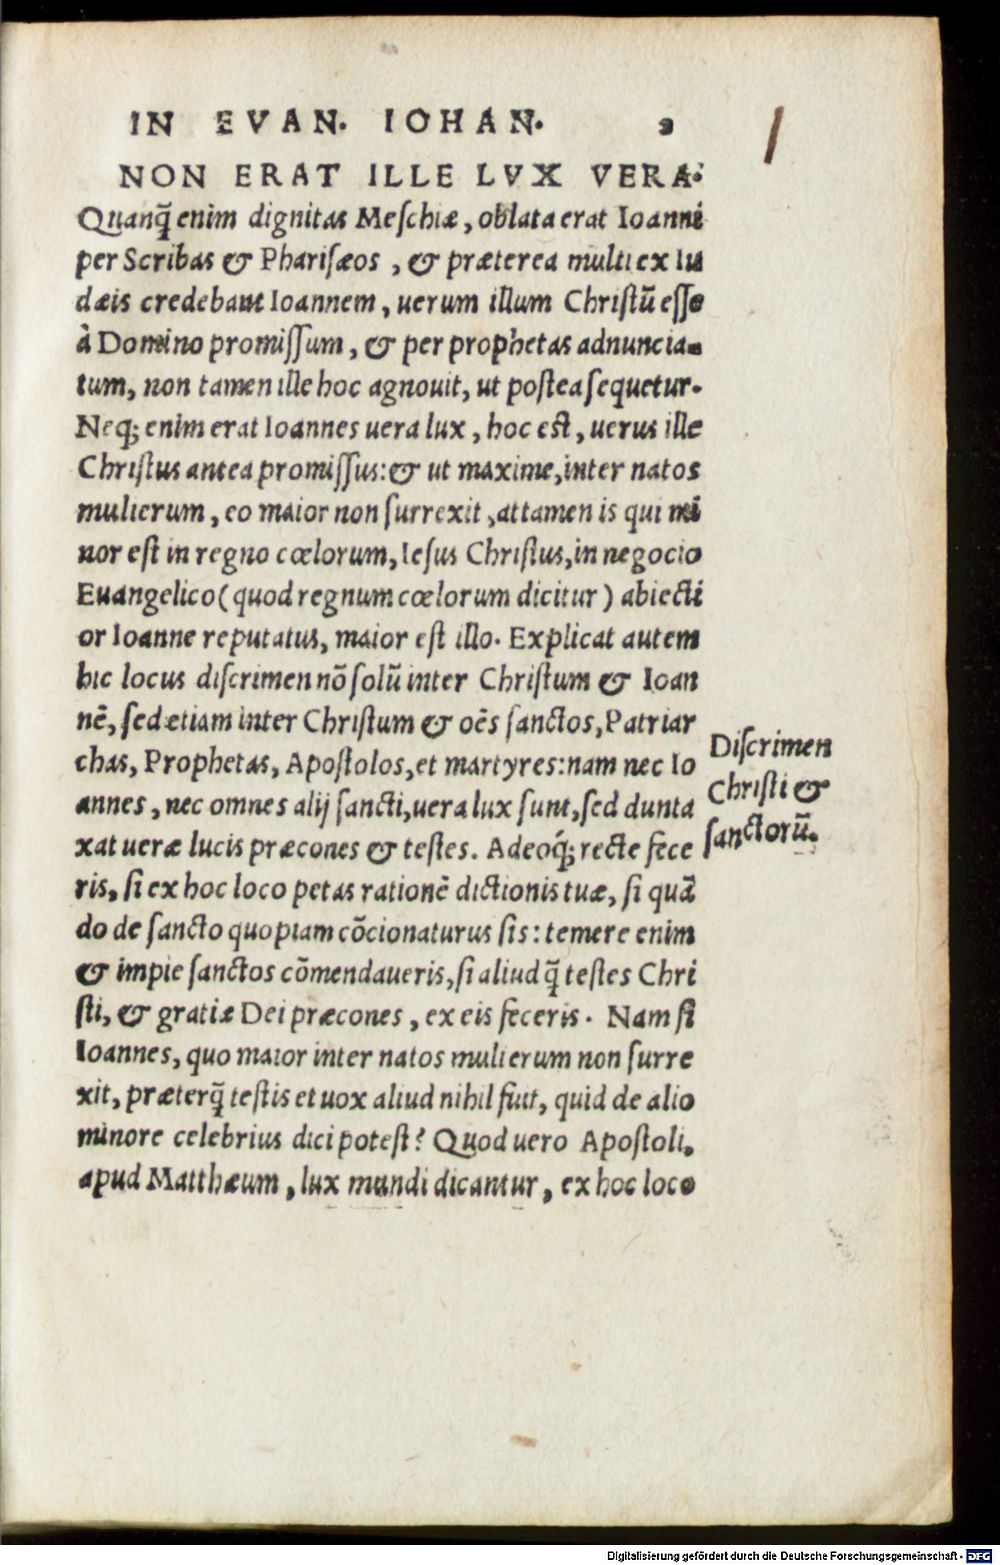 IN EVAN. IOHAN. 9
1
NON ERAT ILLE LVX VERA.
Quanq̃ enim dignitas Meschiæ, oblata erat Ioanni
per Scribas & Pharisæos, & præterea multi ex Iu
dæis credebant Ioannem, uerum illum Christũ esse
à Domino promissum, & per prophetas adnuncia-
tum, non tamen ille hoc agnouit, ut postea sequetur.
Neq; enim erat Ioannes uera lux, hoc est, uerus ille
Christus antea promissus: & ut maxime, inter natos
mulierum, eo maior non surrexit, attamen is qui mi
nor est in regno cœlorum, Iesus Christus, in negocio
Euangelico (quod regnum cœlorum dicitur) abiecti
or Ioanne reputatus, maior est illo. Explicat autem
hic locus discrimen nõ solũ inter Christum & Ioan
nẽ, sed etiam inter Christum & oẽs sanctos, Patriar
chas, Prophetas, Apostolos, et martyres: nam nec Io
annes, nec omnes alij sancti, uera lux sunt, sed dunta
xat ueræ lucis præcones & testes. Adeoq́; recte fece
ris, si ex hoc loco petas rationẽ dictionis tuæ, si quã
do de sancto quopiam cõcionaturus sis: temere enim
& impie sanctos cõmendaueris, si aliud q̃ testes Chri
sti, & gratiæ Dei præcones, ex eis feceris. Nam si
Ioannes, quo maior inter natos mulierum non surre
xit, præterq̃ testis et uox aliud nihil fuit, quid de alio
minore celebrius dici potest? Quod uero Apostoli,
apud Matthæum, lux mundi dicantur, ex hoc loco
Discrimen
Christi &
sanctorũ.
Digitalisierung gefördert durch die Deutsche Forschungsgemeinschaft - DFG